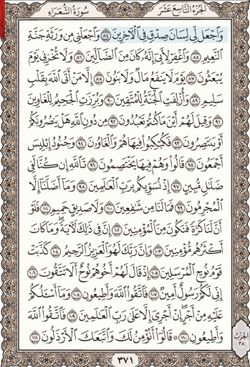 الجزء التاسع عشر سورة الشعراء
وَٱجْعَل لِّى لِسَانَ صِدْقٍ فِى ٱلْءَاخِرِينَ ٨٤ وَٱجْعَلْنِى مِن وَرَثَةِ جَنَّةِ
ٱلنَّعِيمِ ٨٥ وَٱغْفِرْ لِأَبِىٓ إِنَّهُۥ كَانَ مِنَ ٱلضَّآلِّينَ ٨٦ وَلَا تُخْزِنِى يَوْمَ
يُبْعَثُونَ ٨٧ يَوْمَ لَا يَنفَعُ مَالٌ وَلَا بَنُونَ ٨٨ إِلَّا مَنْ أَتَى ٱللَّهَ بِقَلْبٍ
سَلِيمٍ ٨٩ وَأُزْلِفَتِ ٱلْجَنَّةُ لِلْمُتَّقِينَ ٩٠ وَبُرِّزَتِ ٱلْجَحِيمُ لِلْغَاوِينَ
٩١ وَقِيلَ لَهُمْ أَيْنَ مَا كُنتُمْ تَعْبُدُونَ ٩٢ مِن دُونِ ٱللَّهِ هَلْ يَنصُرُونَكُمْ
أَوْ يَنتَصِرُونَ ٩٣ فَكُبْكِبُوا۟ فِيهَا هُمْ وَٱلْغَاوُۥنَ ٩٤ وَجُنُودُ إِبْلِيسَ
أَجْمَعُونَ ٩٥ قَالُوا۟ وَهُمْ فِيهَا يَخْتَصِمُونَ ٩٦ تَٱللَّهِ إِن كُنَّا لَفِى
ضَلَٰلٍ مُّبِينٍ ٩٧ إِذْ نُسَوِّيكُم بِرَبِّ ٱلْعَٰلَمِينَ ٩٨ وَمَآ أَضَلَّنَآ إِلَّا
ٱلْمُجْرِمُونَ ٩٩ فَمَا لَنَا مِن شَٰفِعِينَ ١٠٠ وَلَا صَدِيقٍ حَمِيمٍ ١٠١ فَلَوْ
أَنَّ لَنَا كَرَّةً فَنَكُونَ مِنَ ٱلْمُؤْمِنِينَ ١٠٢ إِنَّ فِى ذَٰلِكَ لَءَايَةً وَمَا كَانَ
أَكْثَرُهُم مُّؤْمِنِينَ ١٠٣ وَإِنَّ رَبَّكَ لَهُوَ ٱلْعَزِيزُ ٱلرَّحِيمُ ١٠٤ كَذَّبَتْ
قَوْمُ نُوحٍ ٱلْمُرْسَلِينَ ١٠٥ إِذْ قَالَ لَهُمْ أَخُوهُمْ نُوحٌ أَلَا تَتَّقُونَ ١٠٦
إِنِّى لَكُمْ رَسُولٌ أَمِينٌ ١٠٧ فَٱتَّقُوا۟ ٱللَّهَ وَأَطِيعُونِ ١٠٨ وَمَآ أَسْـَٔلُكُمْ
عَلَيْهِ مِنْ أَجْرٍ إِنْ أَجْرِىَ إِلَّا عَلَىٰ رَبِّ ٱلْعَٰلَمِينَ ١٠٩ فَٱتَّقُوا۟ ٱللَّهَ
وَأَطِيعُونِ ١١٠ قَالُوٓا۟ أَنُؤْمِنُ لَكَ وَٱتَّبَعَكَ ٱلْأَرْذَلُونَ ١١١
٣٧١